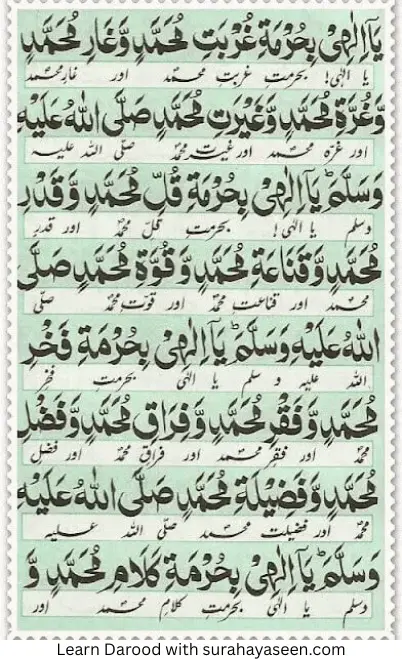 يَآ اِلٰهِىْ بِحُرْمَةِ غُرْبَتِ مُحَمَّدٍ وَّغَارِ مُحَمَّدٍ
یا الٰہی! بحرمت غربتِ محمد اور غارِ محمد
وَّغُرَّةِ مُحَمَّدٍ وَّغَيْرَتِ مُحَمَّدٍ صَلَّى اللهُ عَلَيْهِ
اور غرہ محمد اور غیرت محمد صلی اللہ علیہ
وَسَلَّمَ ؕ يَآ اِلٰهِىْ بِحُرْمَةِ قُلِّ مُحَمَّدٍ وَّقَدْرِ
وسلم یا الٰہی! بحرمت قلِ محمد اور قدرِ
مُحَمَّدٍ وَّقَنَاعَةِ مُحَمَّدٍ وَّقُوَّةِ مُحَمَّدٍ صَلَّى
محمد اور قناعتِ محمد اور قوتِ محمد صلی
اللهُ عَلَيْهِ وَسَلَّمَ ؕ يَآ اِلٰهِىْ بِحُرْمَةِ فَخْرِ
اللہ علیہ و سلم یا الٰہی بحرمت فخرِ
مُحَمَّدٍ وَّفَقْرِ مُحَمَّدٍ وَّفِرَاقِ مُحَمَّدٍ وَّفَضْلِ
محمد اور فقرِ محمد اور فراقِ محمد اور فضلِ
مُحَمَّدٍ وَّفَضِيْلَةِ مُحَمَّدٍ صَلَّى اللهُ عَلَيْهِ
محمد اور فضیلت محمد صلی اللہ علیہ
وَسَلَّمَ ؕ يَآ اِلٰهِىْ بِحُرْمَةِ كَلَامِ مُحَمَّدٍ وَّ
وسلم یا الٰہی بحرمتِ کلامِ محمد اور
Learn Darood with surahayaseen.com